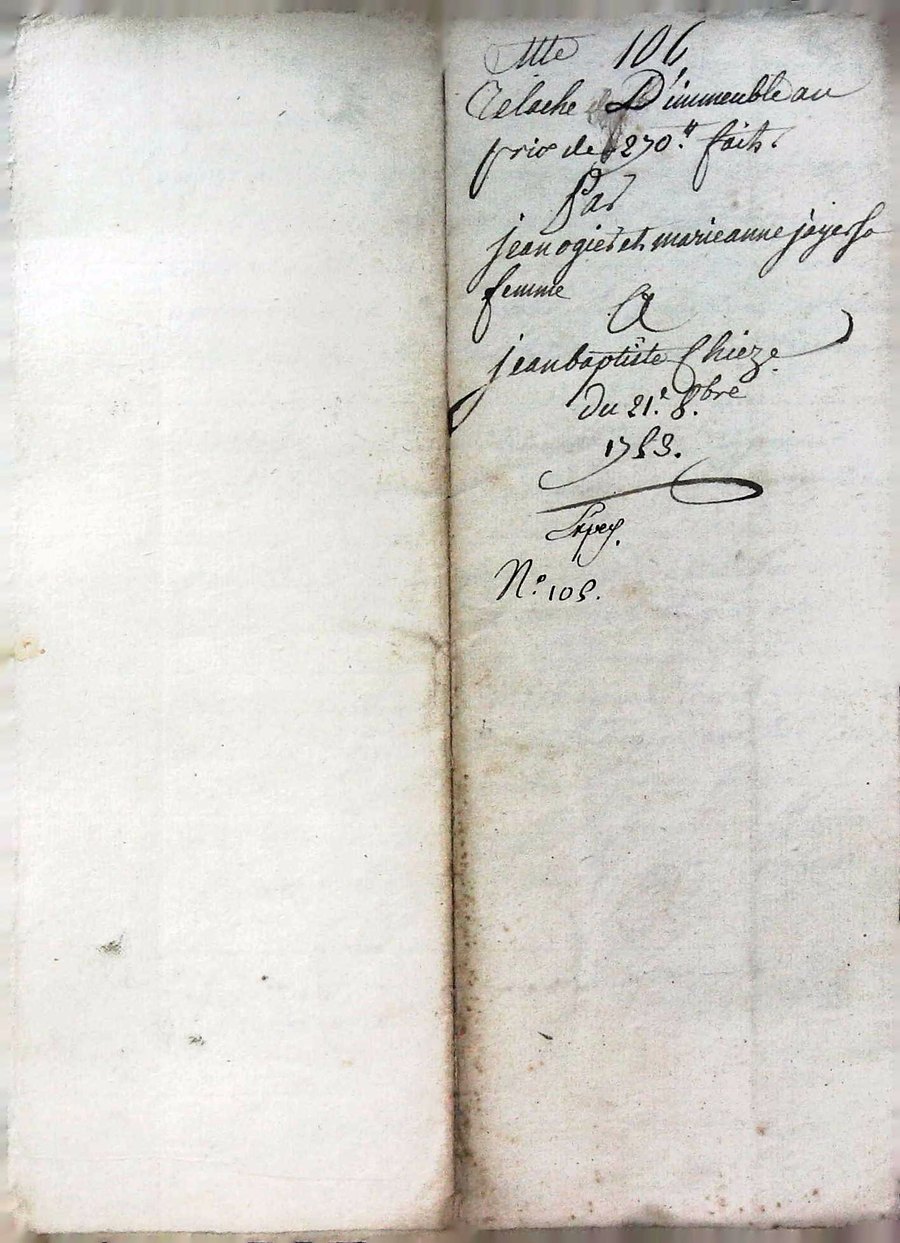 Cotte 106
Relache D'immeuble au
prix de 270.₶ fait
Par
jean ogier et marieanne jayer sa
femme
A
jean baptiste Chieze
Du 21.e 8.bre
1753.
Expey.
N.o 105.